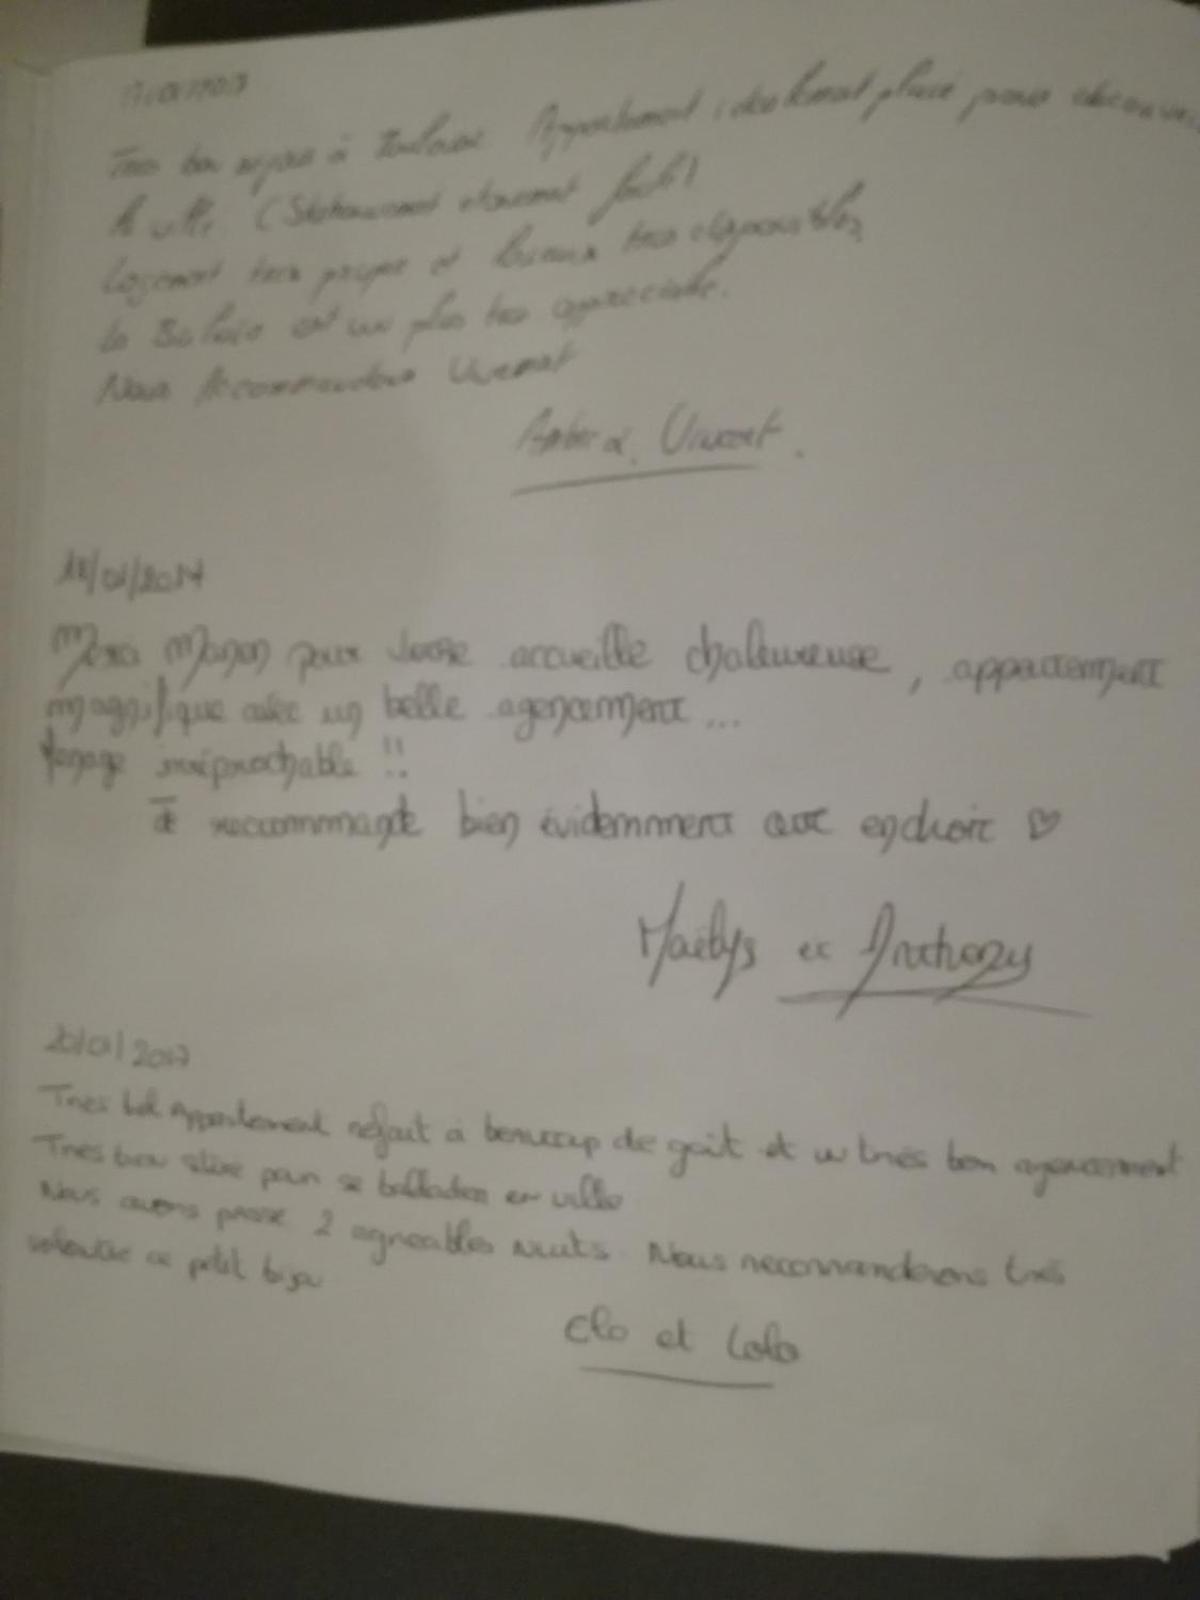 Très bon séjour à Toulouse Appartement idealement placé pour découvrir
la ville. (Stationnement  facile)
Logement tres propre et  tres disponibles
 est un plus tres appreciable.
Nous Recommandons Vivement
 Vincent.
18/01/2017
Merci Manon pour votre accueille chaleureuse, appartement
magnifique avec un belle agencement ...
 irréprochable !!
Je recommande bien évidemment cet endroit ♡
Maëlys et Anthony
20/01/2017
Tres bel Appartement refait à beaucoup de goût et un très bon agencement
Tres bien situé pour se ballader en ville
Nous avons passé 2 agreables nuits. Nous recommanderons très
volontier ce petit bijou
Clo et Lolo